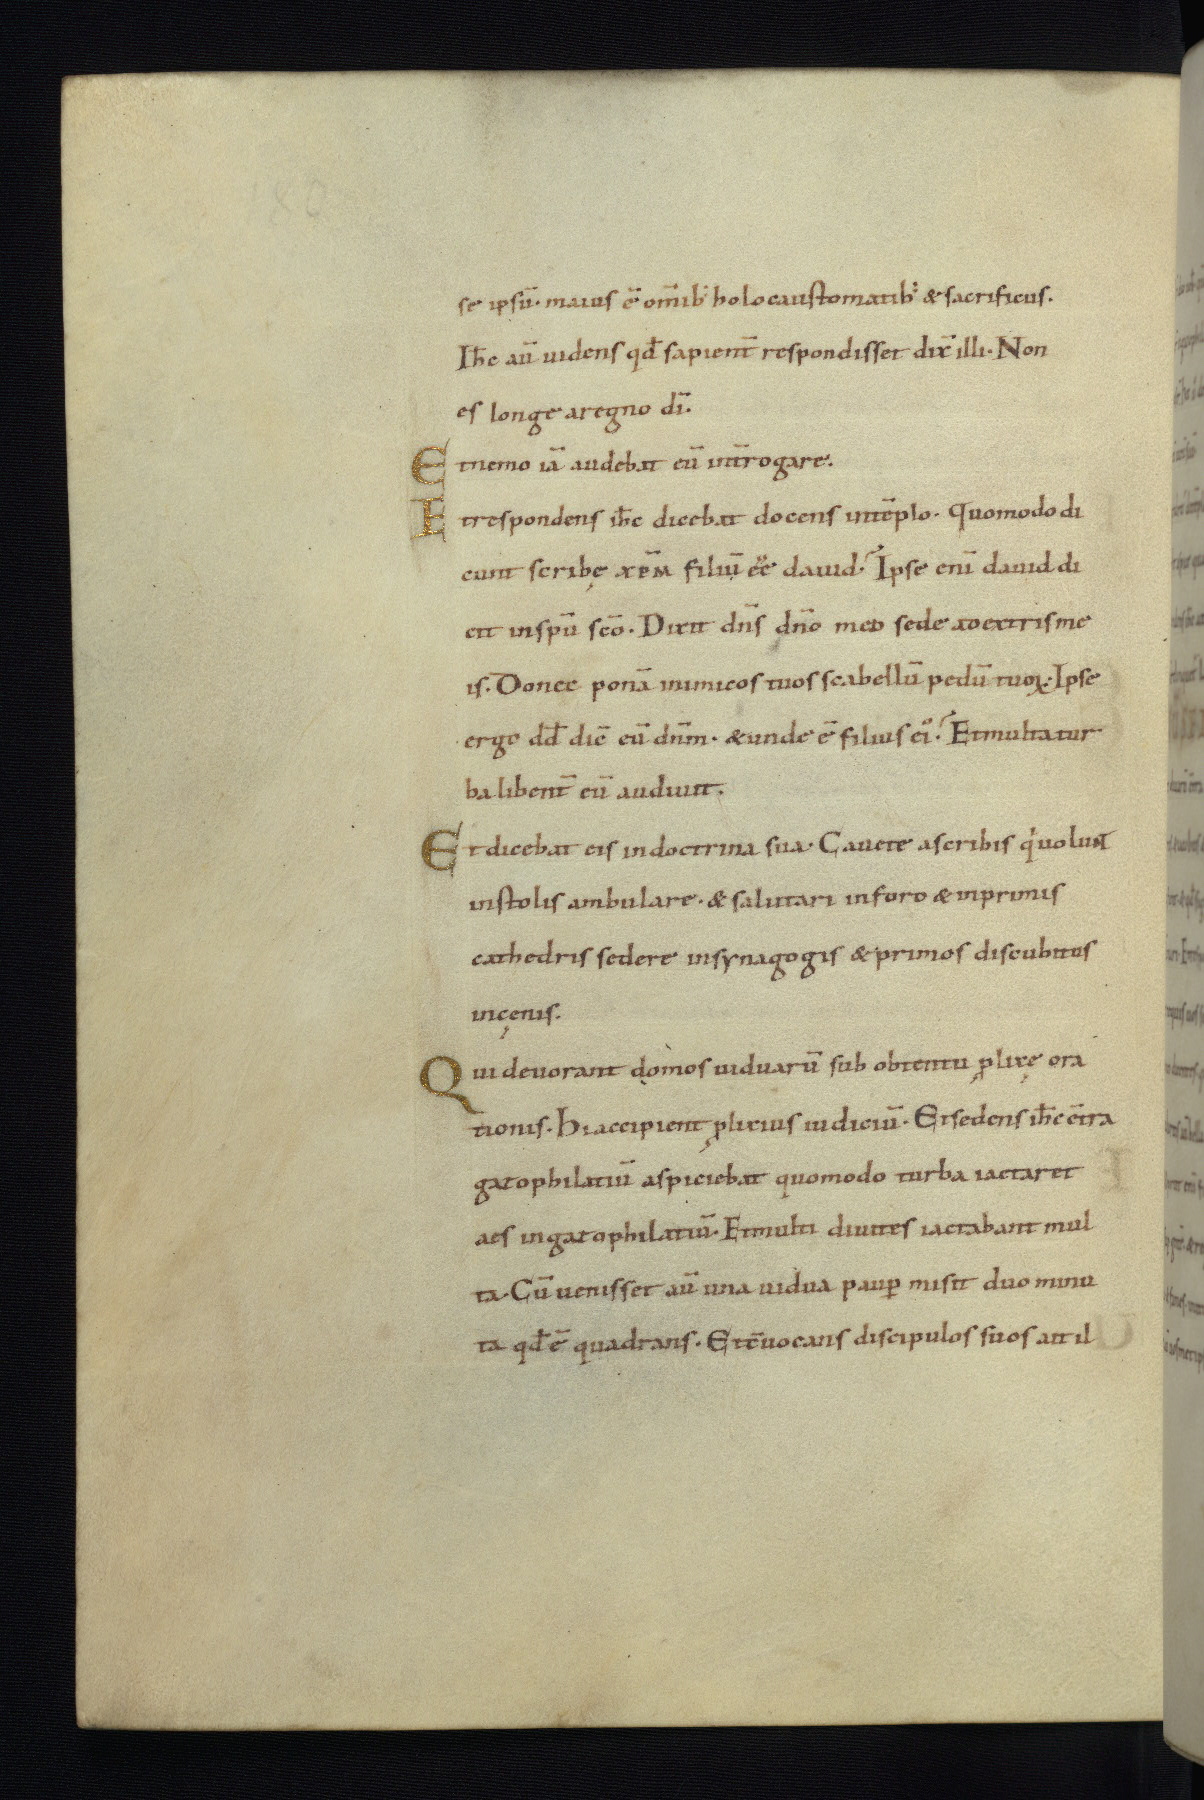 se ipsū· maius ē om̄ib; holocaustomatib; & sacrificiis.
Ih̄c aū uidens qd̄ sapient̄ respondisset dix̄ illi· Non
es longe aregno dī.
Et nemo iā audebat eū int̄rogare.
Et respondens ih̄c dicebat docens intēplo· Quomodo di
cunt scribę xp̄m filiū eē dauid· Ipse enī dauid di
cit inspū scō· Dixit dn̄s dn̄o meo sede adextris me
is· Donec ponā inimicos tuos scabellū pedū tuoꝝ· Ipse
ergo dd̄ dic̄ eū dn̄m· & unde ē filius ei᾽· Et multa tur
ba libent̄ eū audiuit.
Et dicebat eis indoctrina sua· Cauete ascribis qͥ uolunt
instolis ambulare· & salutari inforo & inprimis
cathedris sedere insynagogis & primos discubitus
incęnis.
Qui deuorant domos uiduarū sub obtentu ꝓlixę ora
tionis· Hi accipient ꝓlixius iudiciū· Et sedens ih̄c c̄tra
gazophilatiū aspiciebat quomodo turba iactaret
aes ingazophilatiū· Et multi diuites iactabant mul
ta· Cū uenisset aū una uidua paup̱ misit duo minu
ta qd̄ ē quadrans· Et c̄uocans discipulos suos ait il